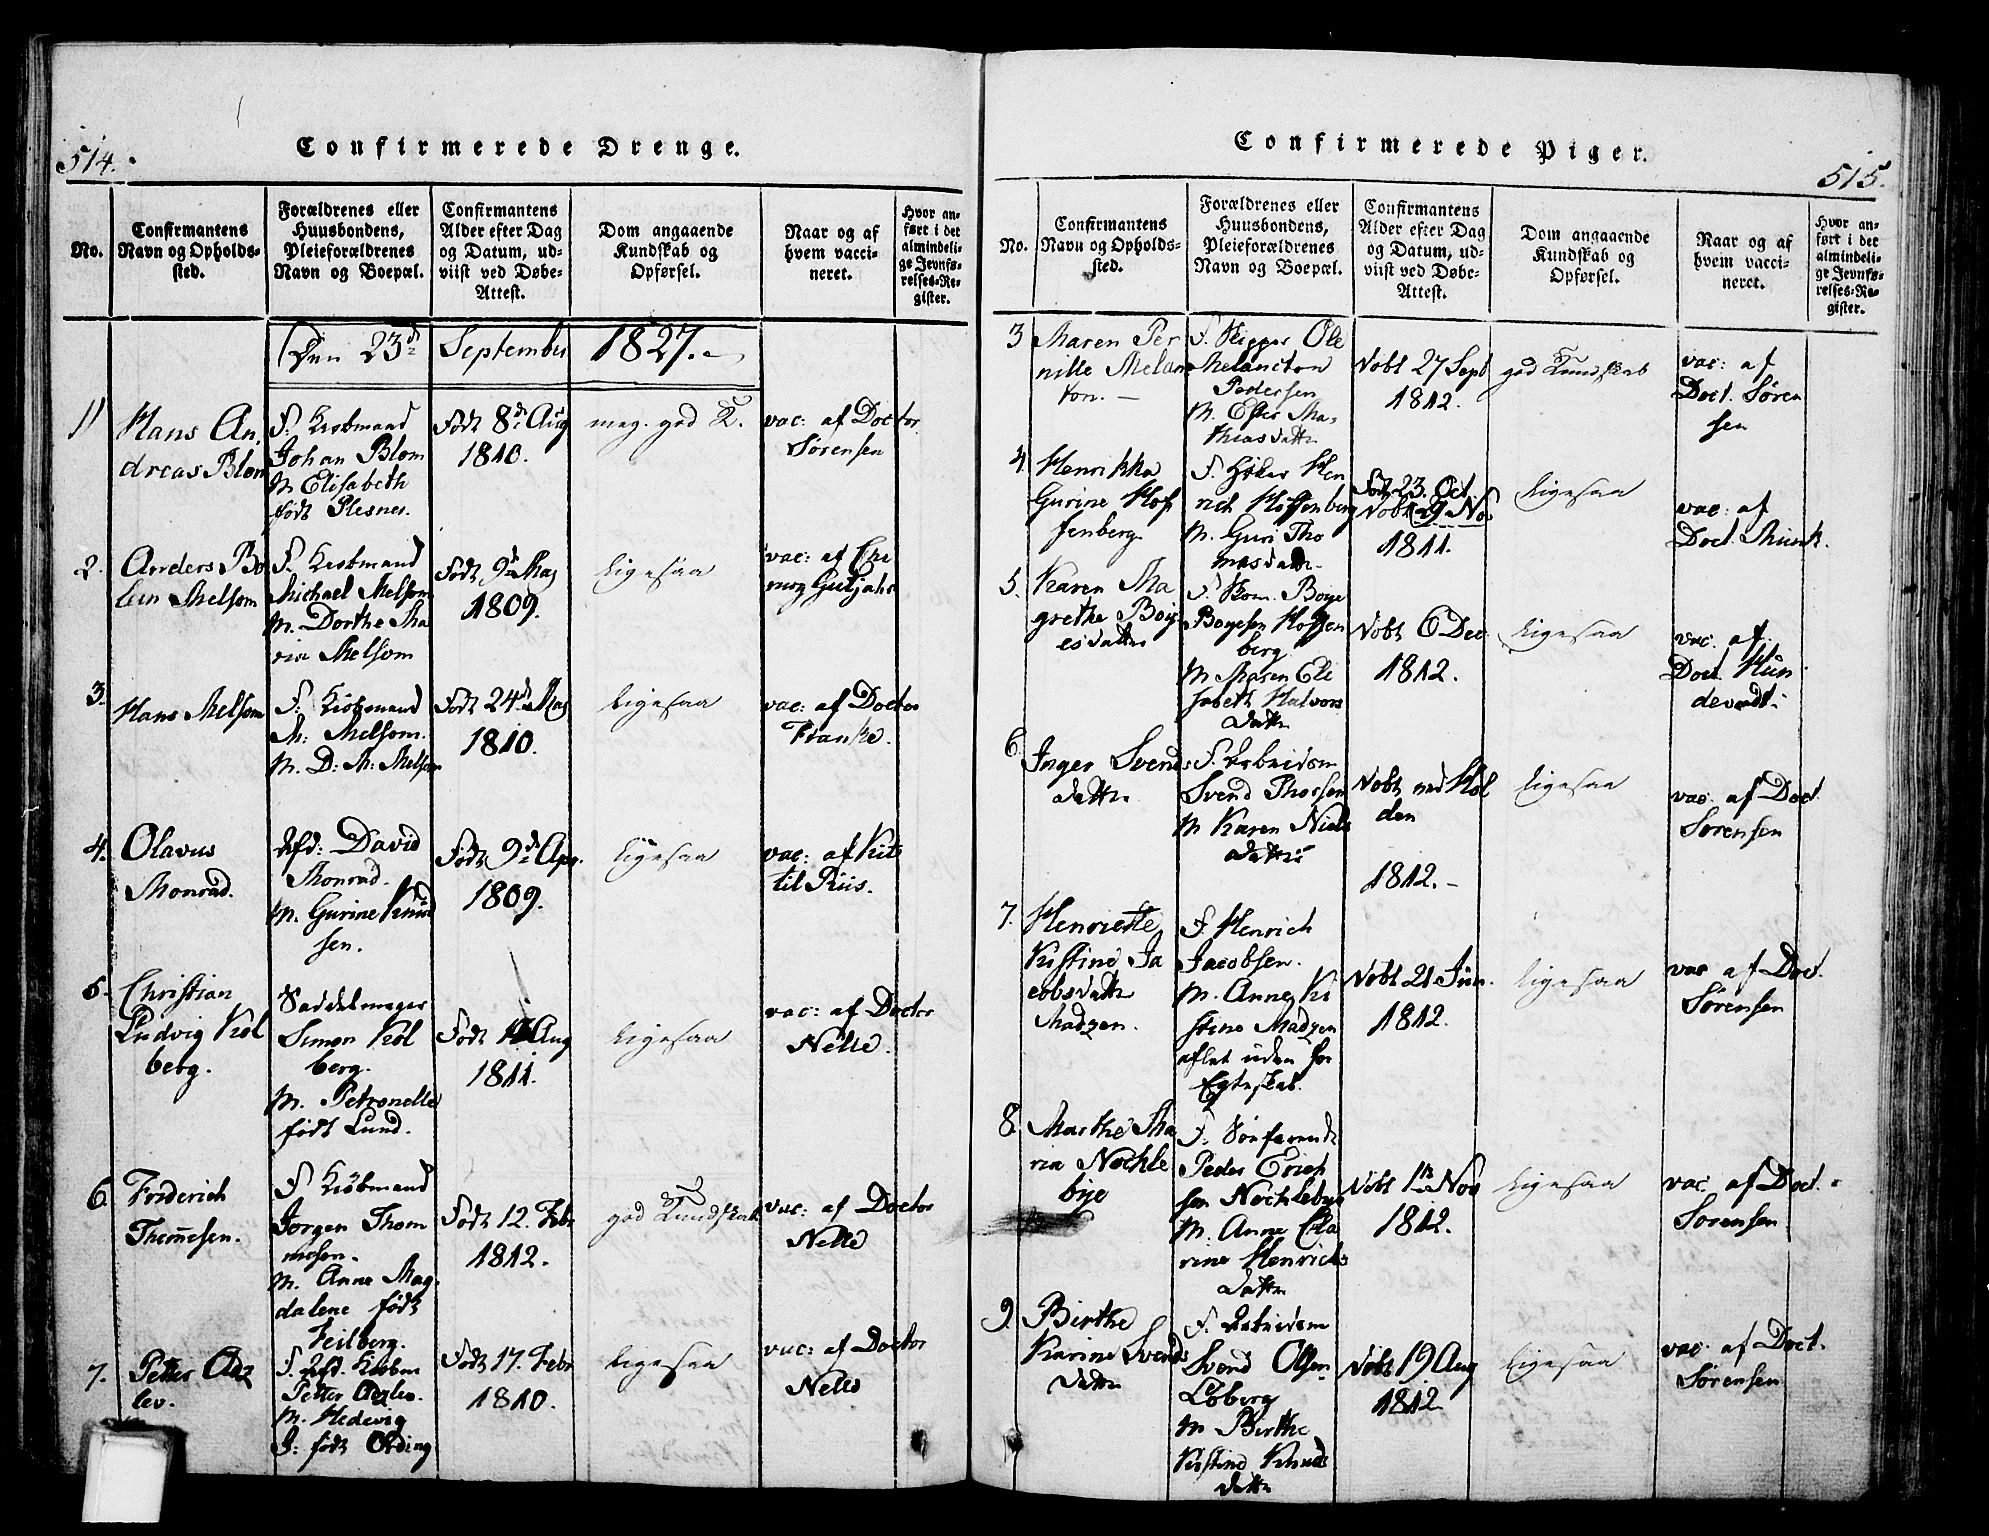 514.
Confirmerede Drenge.
No.
Confirmantens
Navn og Opholds-
sted.
Forældrenes eller
Huusbondens,
Pleieforældrenes
Navn og Boepæl.
Confirmantens
Alder efter Dag
og Datum, ud-
viist ved Døbe-
Attest.
Dom angaaende
Kundskab og
Opførsel.
Naar og af
hvem vacci-
neret.
Hvor an-
ført i det
almindeli-
ge Jevnfø-
relses-Re-
gister.
Den 23d September 1827.
1
Hans An,
dreas Blom
F. Kiøbmand
Johan Blom
M Elisabeth
født Plesner.
Født 8d Aug
1810.
meg. god K.
vac: af Doctor
Sørensen
2.
Anders Bo
lin Melsom
F. Kiøbmand
Michael Melsom
M. Dorthe Ma
ria Melsom
Født 9d Maj
1809.
Ligesaa
vac: af Chi
rurg Gutjahr
3.
Hans Melsom
F. Kiøbmand
M. Melsom.
M. D: M: Melsom
Født 24d Maj
1810.
Ligesaa
vac: af Doctor
Franke.
4.
Olavus
Monrad.
Afd: David
Monrad.
M. Gurine Knud
sen.
Født 9d Apr.
1809.
Ligesaa
vac: af Kit
til Riis.
5.
Christian
Ludvig Kol
berg.
Saddelmager
Simon Kol
berg.
M. Petronelle
født Lund.
Født Aug
1811.
Ligesaa
vac: af Doctor
Nelle.
6.
Friderich
Thommesen.
F Kiøbmand
Jørgen Thom
mesen.
M. Anne Mag.
dalene født
Feilberg.
Født 12. Febr
1812.
god Kundskab
vac: af Doctor
Nelle
7.
Petter Adz
lev.
F. Afd. Kiøbm
Petter Adzlev.
M. Hedevig
J: født Ording
Født 17. Febr
1810.
Ligesaa
vac: af Doctor
Nelle
Confirmerede Piger.
515.
No.
Confirmantens
Navn og Opholds-
sted.
Forældrenes eller
Huusbondens,
Pleieforældrenes
Navn og Boepæl.
Confirmantens
Alder efter Dag
og Datum, ud-
viist ved Døbe-
Attest.
Dom angaaende
Kundskab og
Opførsel.
Naar og af
hvem vacci-
neret.
Hvor an-
ført i det
almindeli-
ge Jevnfø-
relses-Re-
gister.
3
Maren Per
nille Melanc
ton. —
F. Rigger Ole
Melancton
Pedersen
M. Ester Ma-
thiasdatter
Døbt 27 Sept
1812.
god Kundskab
vac: af
Doct. Søren
sen
4.
Henrikka
Gurine Hof
fenberg.
F. Høker Hen
rich Hoffenberg
M. Guri Tho
masdatter
Født 23. Oct.
Døbt 29 Nov
1811.
Ligesaa
vac: af
Doct. Munk.
5.
Karen Ma
grethe Boy
esdatter
F. Tom. Boye
Boyesen Hoffen
berg
M Maren Eli
sabeth Halvors
datter
Døbt 6 Dec
1812.
Ligesaa
vac. af
Doct. Hun
devadt.
6.
Inger Svends
datter
F. Arbeidsm
Svend Thorsen
M Karen Niels
datter
Døbt ved Hol
den
1812. –
Ligesaa
vac. af Doct.
Sørensen
7.
Henriette
Kistine Ja
cobsdatter
Madzen.
F. Henrich
Jacobsen.
M. Anne Ki
stine Madzen
aflet uden for
Egteskab.
Døbt 21 Jun.
1812.
Ligesaa
vac af Doct.
Sørensen
8.
Marthe Ma
ria Nøchle
bye
F. Søefarende
Peder Erich
sen Nøchlebye
M. Anne Cla
rine Henrichs
datter
Døbt 1n Nov
1812.
Ligesaa
vac. af Doct.
Sørensen
9.
Birthe
Karine Svends
datter
F. Arbeidsm
Svend Olsen
Loberg
M Birthe
Kistine Knuds
datter
Døbt 19. Aug
1812.
Ligesaa
vac. af Doct.
Sørensen